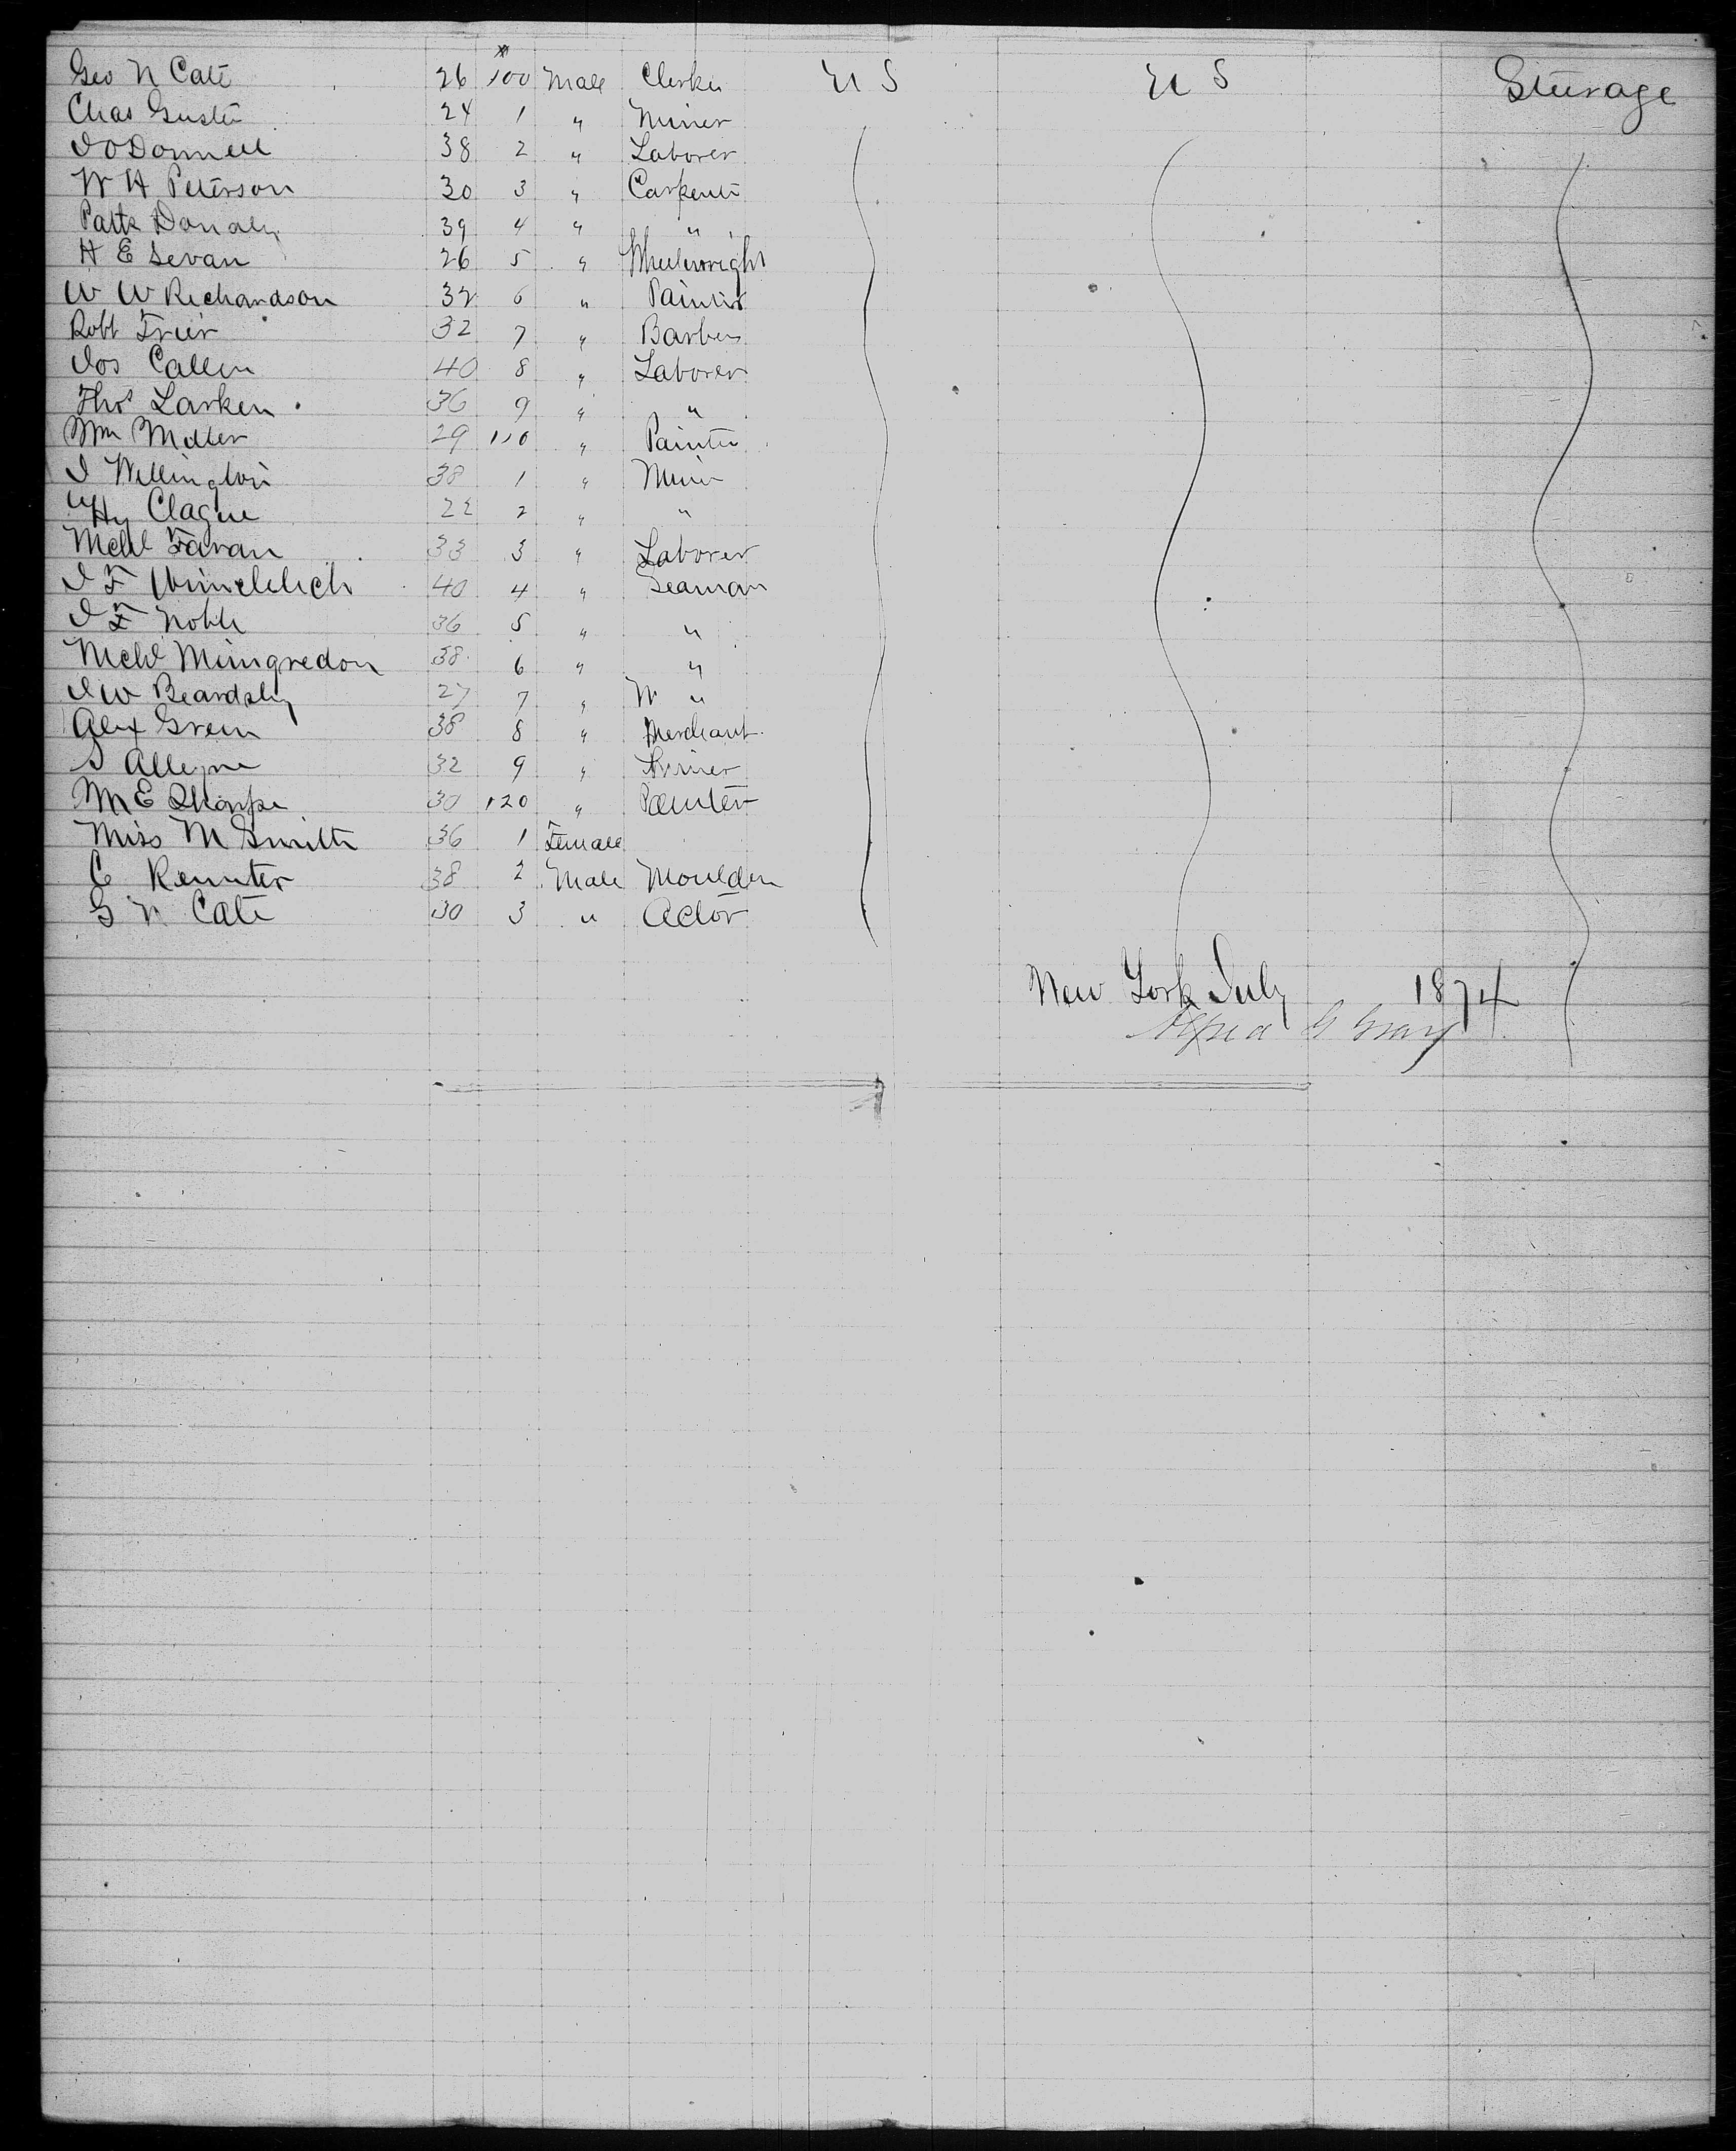 Geo N Cate 26 100 Male Clerk U S U S Steerage
Chas Guster 24 1 " Miner
J O Donnell 38 2 " Laborer
W H Peterson 30 3 " Carpenter
Patk Donaly 39 4 " "
H E Sevan 26 5 " Wheelwright
W W Richardson 32 6 " Painter
Robt Frier 32 7 " Barber
Jos Callen 40 8 " Laborer
Thos Larken 36 9 " "
Wm Miller 29 110 " Painter
J Wellington 38 1 " Miner
Hy Clague 22 2 " "
Mchl Favan 33 3 " Laborer
J F 40 4 " Seaman
J F Noble 36 5 " "
Mchl 38 6 " "
J W Beardsley 27 7 " W "
Alex Green 38 8 " Merchant
S Alleyne 32 9 "
M E Sharpe 30 120 " Painter
Miss M Smith 36 1 Female
C 38 2 Male Moulder
G N Cate 30 3 " Actor
New York July 1874
G Gray